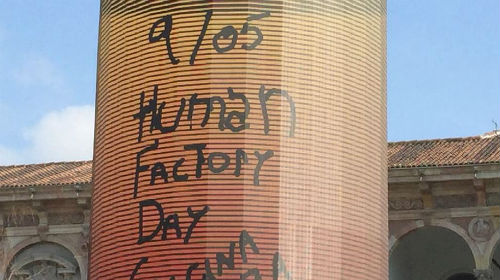 9/05
Human
Factory
Day